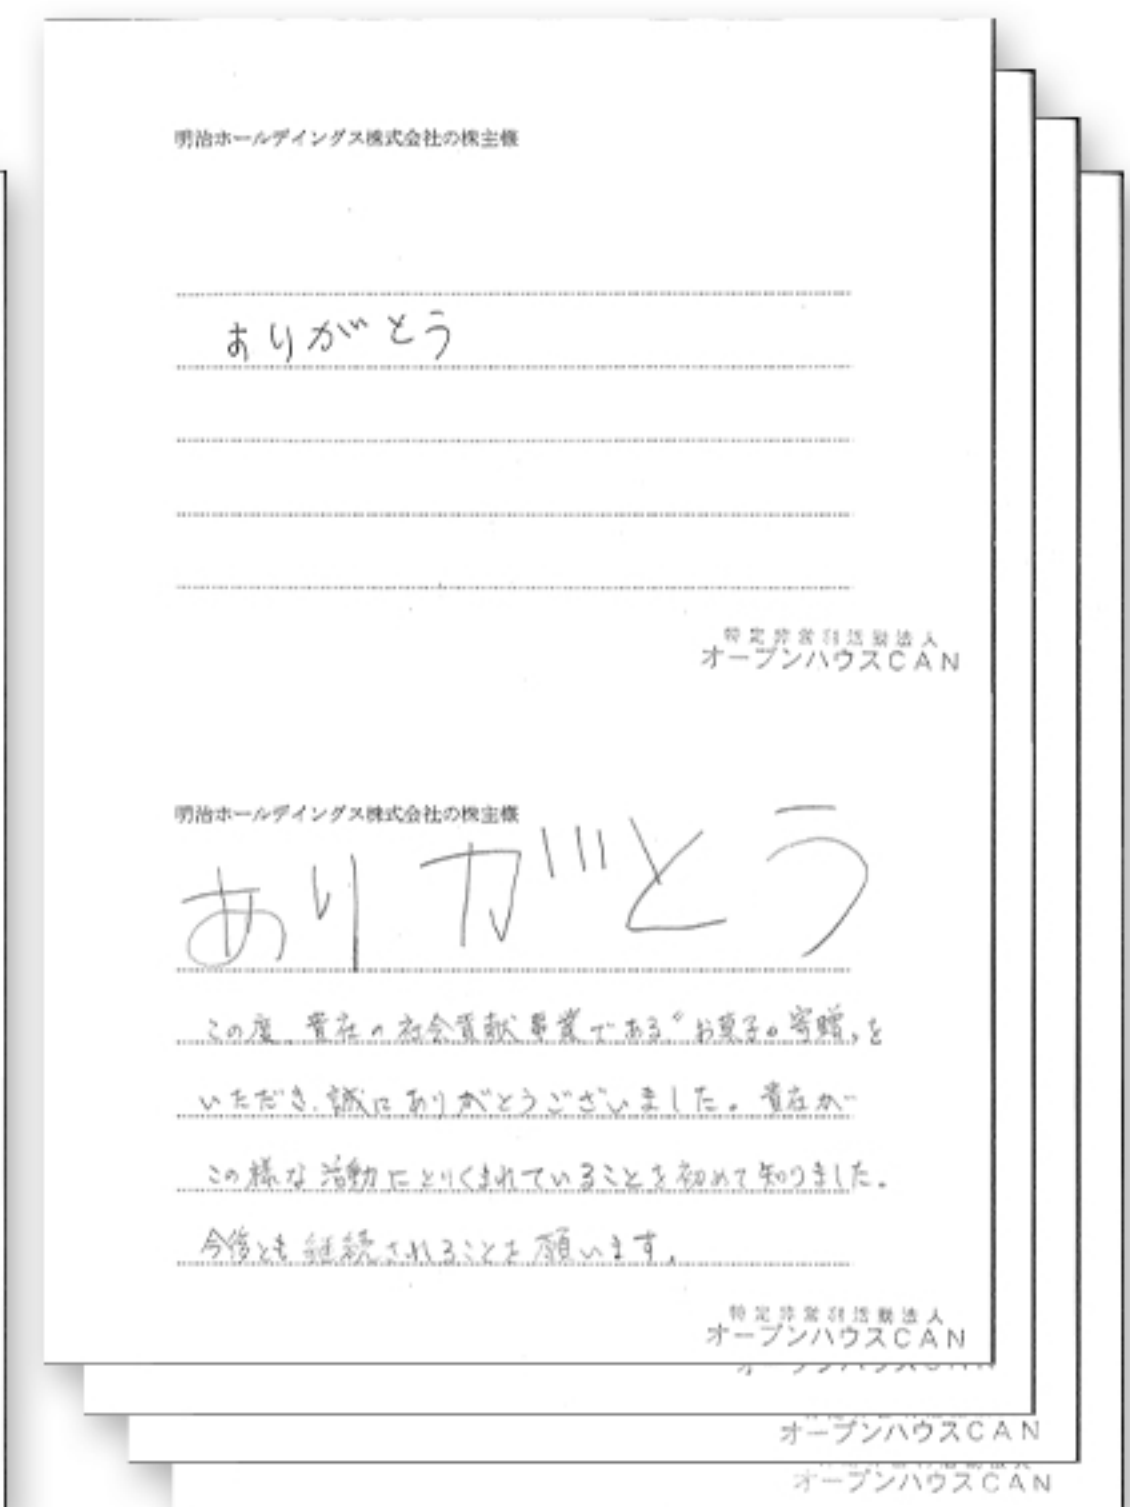 明治ホールデイングス株式会社の株主様
ありがとう
特定非営利活動法人
オープンハウスCAN
明治ホールデイングス株式会社の株主様
ありがとう
この度、貴社の社会貢献事業である"お菓子の寄贈"を
いただき、誠にありがとうございました。貴社が
この様な活動にとりくまれていることを初めて知りました。
今後とも継続されることを願います。
特定非営利活動法人
オープンハウスCAN
オープンハウスCAN
オープンハウスCAN